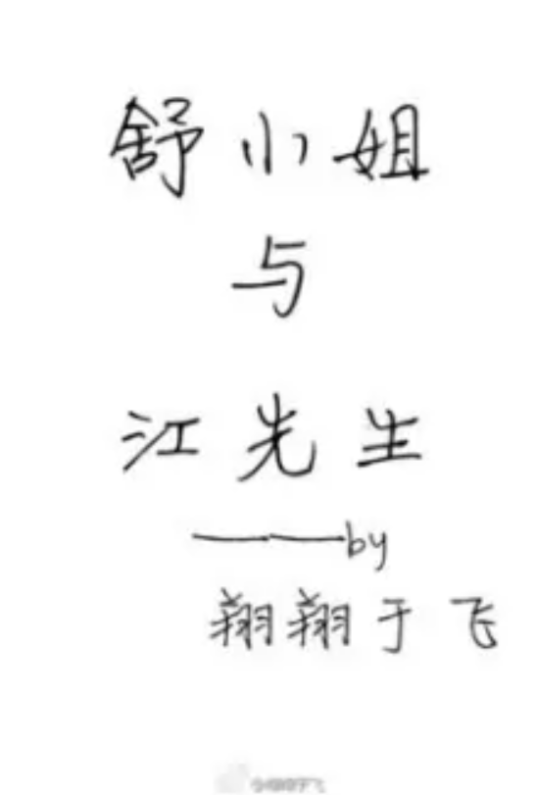 舒小姐
与
江先生
——by
翔翔于飞